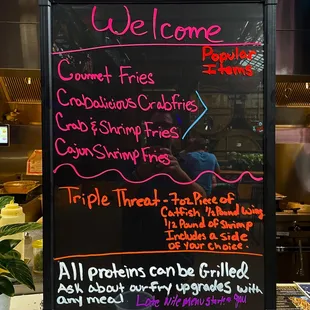 Welcome
Popular
Items
Gourmet Fries
Crabalicious Crabfries
Crab & Shrimp Fries
Cajun Shrimp Fries
Triple Threat - 7oz Piece of
Catfish 1/2 Pound Wing
1/2 Pound of Shrimp
Includes a side
of your choice.
All proteins can be Grilled
Ask about our fry upgrades with
any meal Late Nite Menu starts